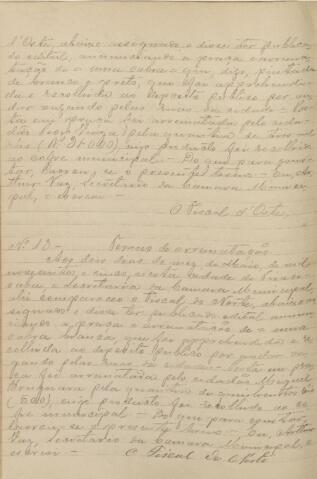 d'Oeste, abaixo assignado e disse ter publica-
do edital, annunciando a praça e arrema-
tação de uma cabra digo, pintada
de branco e preto, que foi apprehendi-
da e recolhida ao deposito publico por an-
dar vagando pelas ruas da cidade.
em praça foi arrematada pelo cida-
dão pela quantia de
reis cujo producto foi recolhido
ao cofre municipal. Do que para cons-
tar, lavrou-se o presente termo. Eu, Ar-
thur Vaz, secretario da Camara Munici-
pal, o escrevi.
O Fiscal d'Oeste,
Nº 13 - Termo de arrematação.
Aos dois dias do mez de Maio, de mil
novecentos e cinco, nesta cidade de Piraci-
caba, e Secretaria da Camara Municipal,
ahi compareceu o Fiscal do Norte, abaixo as-
signado e disse ter publicado edital annun-
ciando a praça e arrematação de uma
cabra branca, que foi apprehendida e re-
colhida ao deposito publico por andar va-
gando pelas ruas da cidade. Posta em pra-
ça foi arrematada pelo cidadão Miguel
pela quantia de quinhentos reis
(500), cujo producto foi recolhido ao co-
fre municipal. Do que para constar,
lavrou-se o presente termo. Eu, Arthur
Vaz, secretario da Camara Municipal, o
escrevi. O Fiscal do Norte